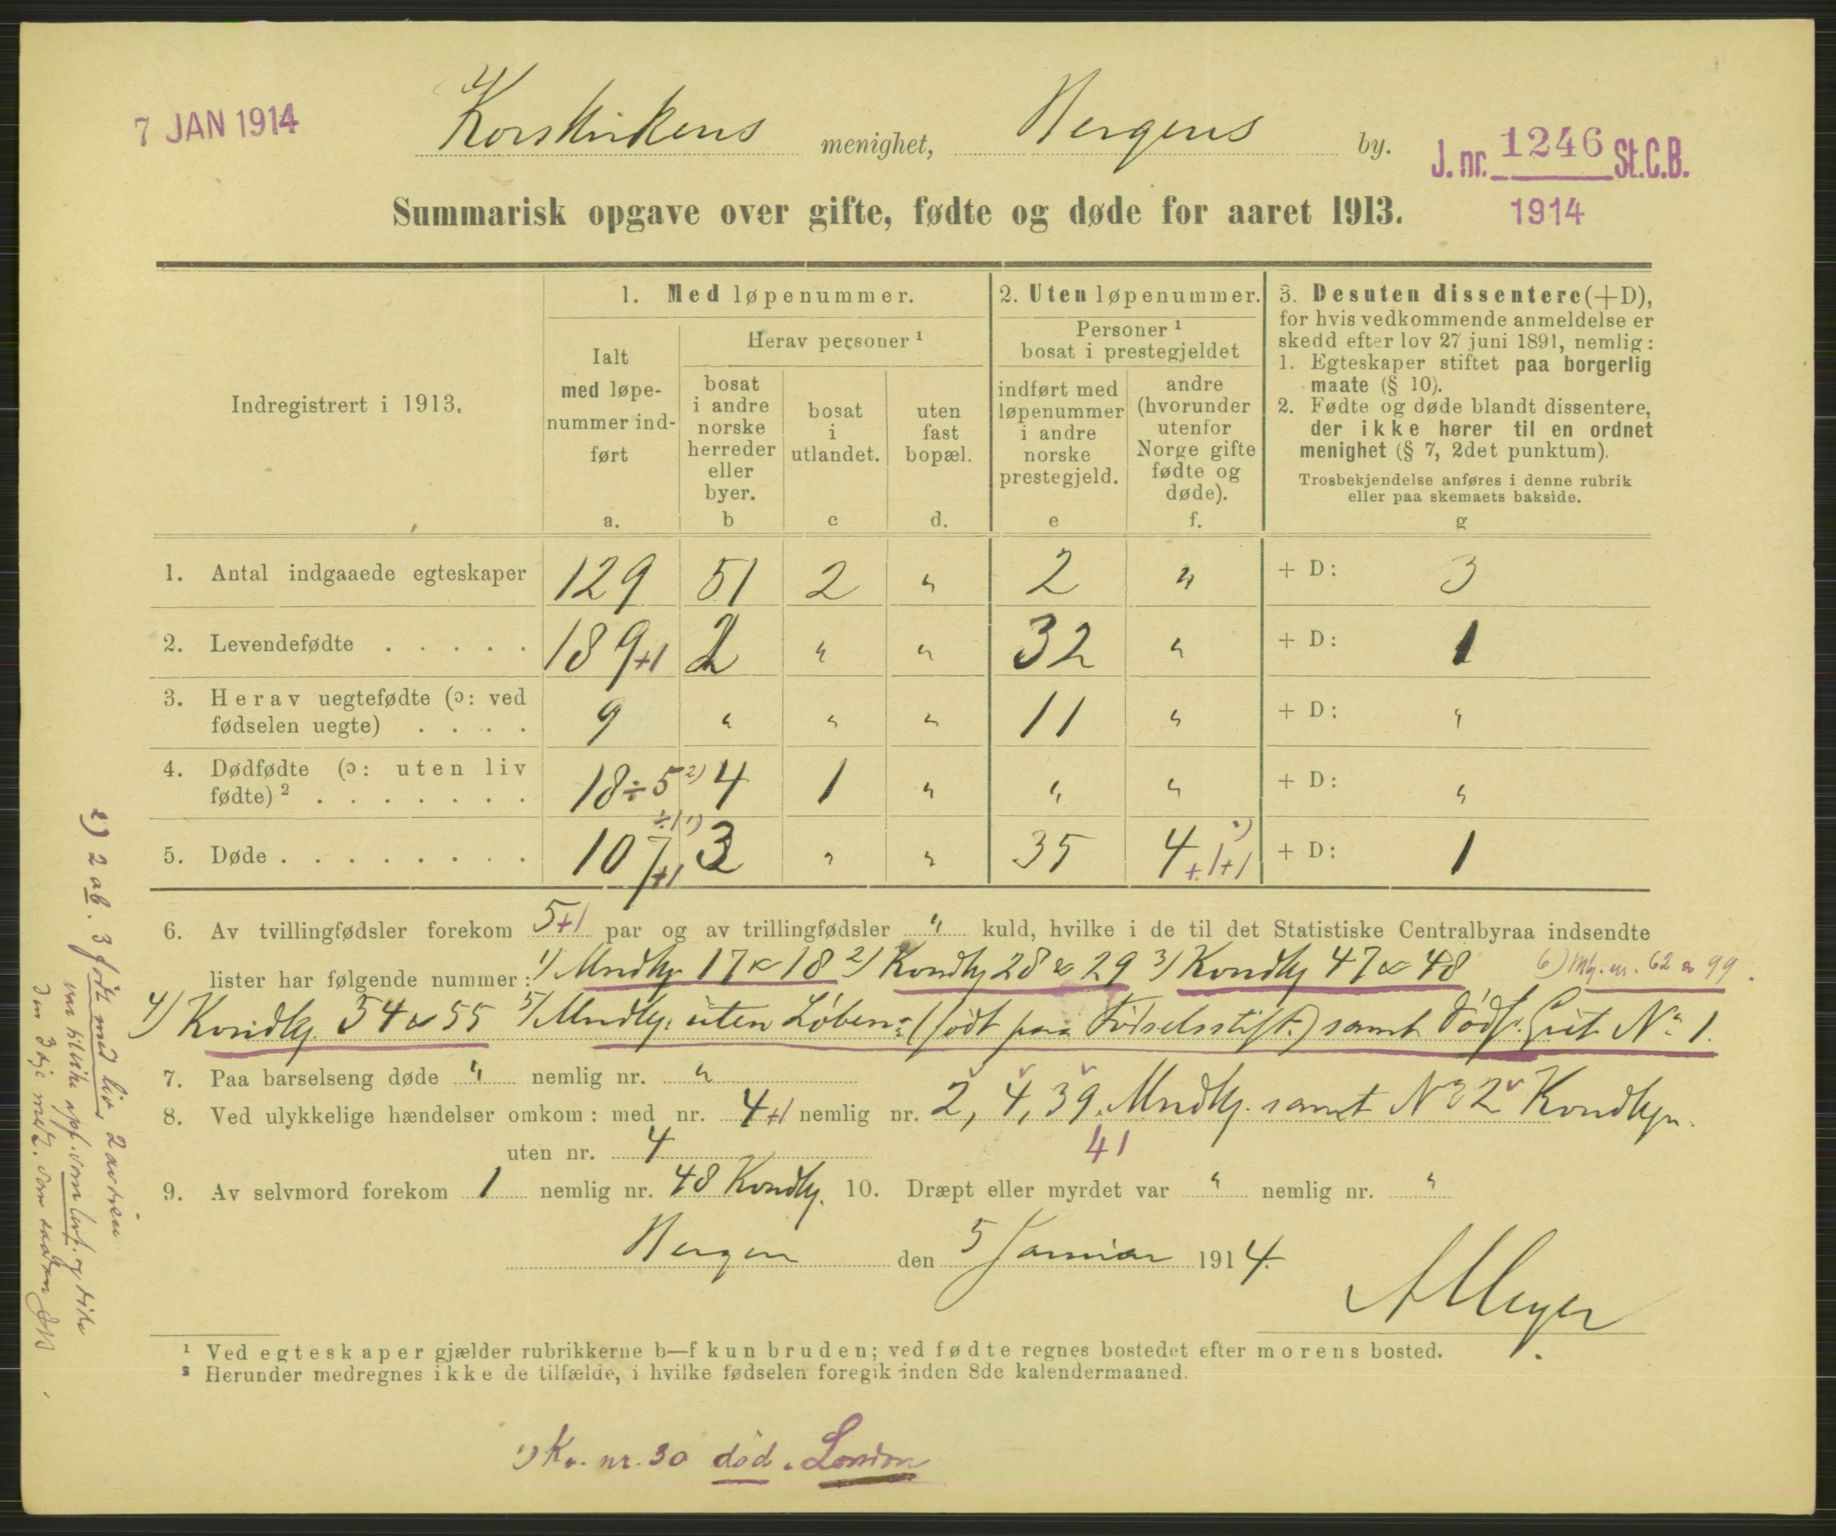 7 JAN 1914
Korskirkens menighet, Bergens by.
J. nr. 1246 St.C.B.
1914
Summarisk opgave over gifte, fødte og døde for aaret 1913.
Indregistrert i 1913.
1. Med løpenummer.
Ialt med løpenummer indført
a.
Herav personer ¹
bosat i andre norske herreder eller byer.
b
bosat i utlandet.
c
uten fast bopæl.
d.
2. Uten løpenummer.
Personer ¹ bosat i prestegjeldet
indført med løpenummer i andre norske prestegjeld.
e
andre (hvorunder utenfor Norge gifte fødte og døde).
f.
3. Desuten dissentere (+D),
for hvis vedkommende anmeldelse er
skedd efter lov 27 juni 1891, nemlig:
1. Egteskaper stiftet paa borgerlig
maate (§ 10).
2. Fødte og døde blandt dissentere,
der ikke hører til en ordnet
menighet (§ 7, 2det punktum).
Trosbekjendelse anføres i denne rubrik
eller paa skemaets bakside.
g
1. Antal indgaaede egteskaper 129 51 2 " 2 " + D: 3
2. Levendefødte . . . . . 189+1 2 " " 32 " + D: 1
3. Herav uegtefødte (ɔ: ved
fødselen uegte) . . . . 9 " " " 11 " + D: "
4. Dødfødte (ɔ: uten liv
fødte) ² . . . . . . . 18÷5 ²) 4 1 " " " + D: "
5. Døde . . . . . . . . 107 ÷1 ¹) +1 3 " " 35 4+1+1 ¹) + D: 1
6. Av tvillingfødsler forekom 5+1 par og av trillingfødsler " kuld, hvilke i de til det Statistiske Centralbyraa indsendte
lister har følgende nummer: 1) Mndkj. 17 & 18 2) Kvndkj 28 & 29 3) Kvndkj 47 & 48 6) Mkj. nr. 62 & 99.
4) Kvindkj. 54 & 55 5) Mndkj. uten Løben= (født paa Fødselsstift.) samt Dødf. Gut No 1.
7. Paa barselseng døde " nemlig nr. "
8. Ved ulykkelige hændelser omkom: med nr. 4+1 nemlig nr. 2, 4, 39. Mndkj. samt No 2 Kvndkjn.
41
uten nr. 4
9. Av selvmord forekom 1 nemlig nr. 48 Kvndkj. 10. Dræpt eller myrdet var " nemlig nr. "
Bergen den 5 Januar 1914.
A Meyer
¹ Ved egteskaper gjælder rubrikkerne b—f kun bruden; ved fødte regnes bostedet efter morens bosted.
² Herunder medregnes ikke de tilfælde, i hvilke fødselen foregik inden 8de kalendermaaned.
¹) Kv. nr. 30 død i London
²) 2 ab. 3 født med liv